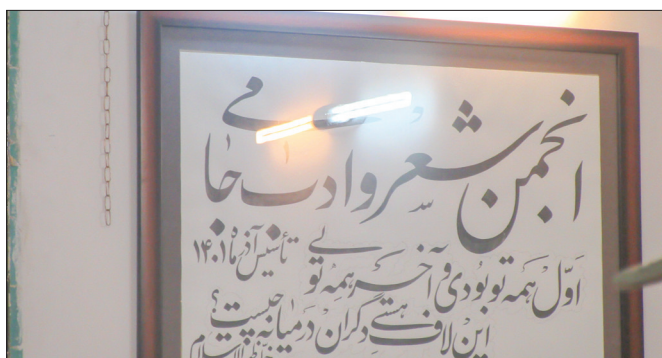 انجمن شعر و ادب جامی
تأسیس آذر ماه ۱۴۰۱
اوّل همه تو بودی و آخر همه تویی
این لاف هستی دگران در میانه چیست؟